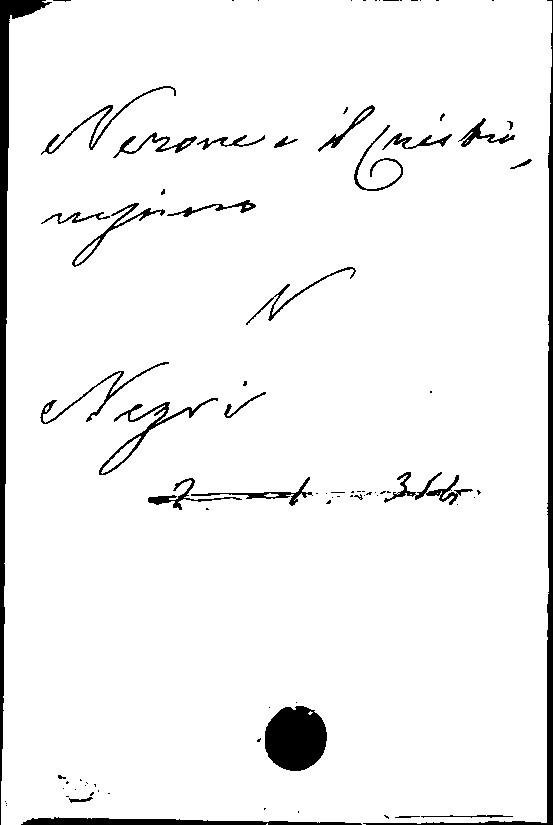 Nerone e il Cristia,
nesimo
N
Negri
2 1 354